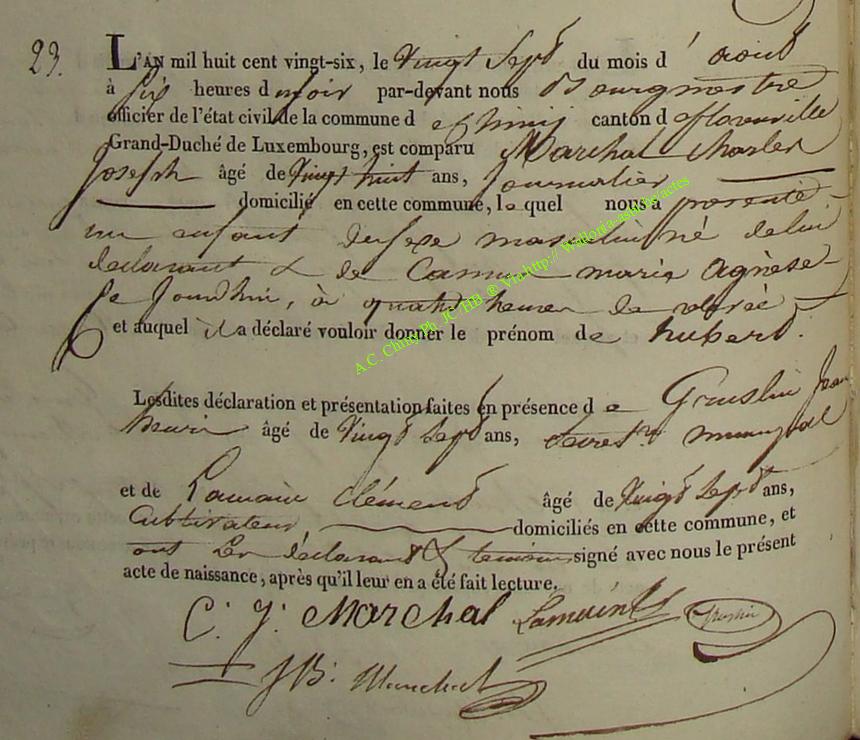 23.
L'AN mil huit cent vingt-six, le Vingt Sept du mois d' aout
à six heures du soir par-devant nous Bourgmestre
officier de l'état civil de la commune de chiny canton de florenville
Grand-Duché de Luxembourg, est comparu Marchal charles
Joseph âgé de Vingt huit ans, journalier
domicilié en cette commune, le quel nous a presenté
un enfant du sexe masculin né de lui
declarant & de Camus marie Agnèse
le jourdhui, à quatre heures de
et auquel il a déclaré vouloir donner le prénom de hubert.
Lesdites déclaration et présentation faites en présence de Jean
henri âgé de Vingt Sept ans, municipal
et de Lamain clément âgé de Vingt Sept ans,
Cultivateur domiciliés en cette commune, et
ont Les declarant & temoins signé avec nous le présent
acte de naissance, après qu'il leur en a été fait lecture.
C. J. Marchal Lamain
J B. Marchal
A.C. Chiny Ph. JC HB ® Via http:// Wallonia-asbl.be/actes